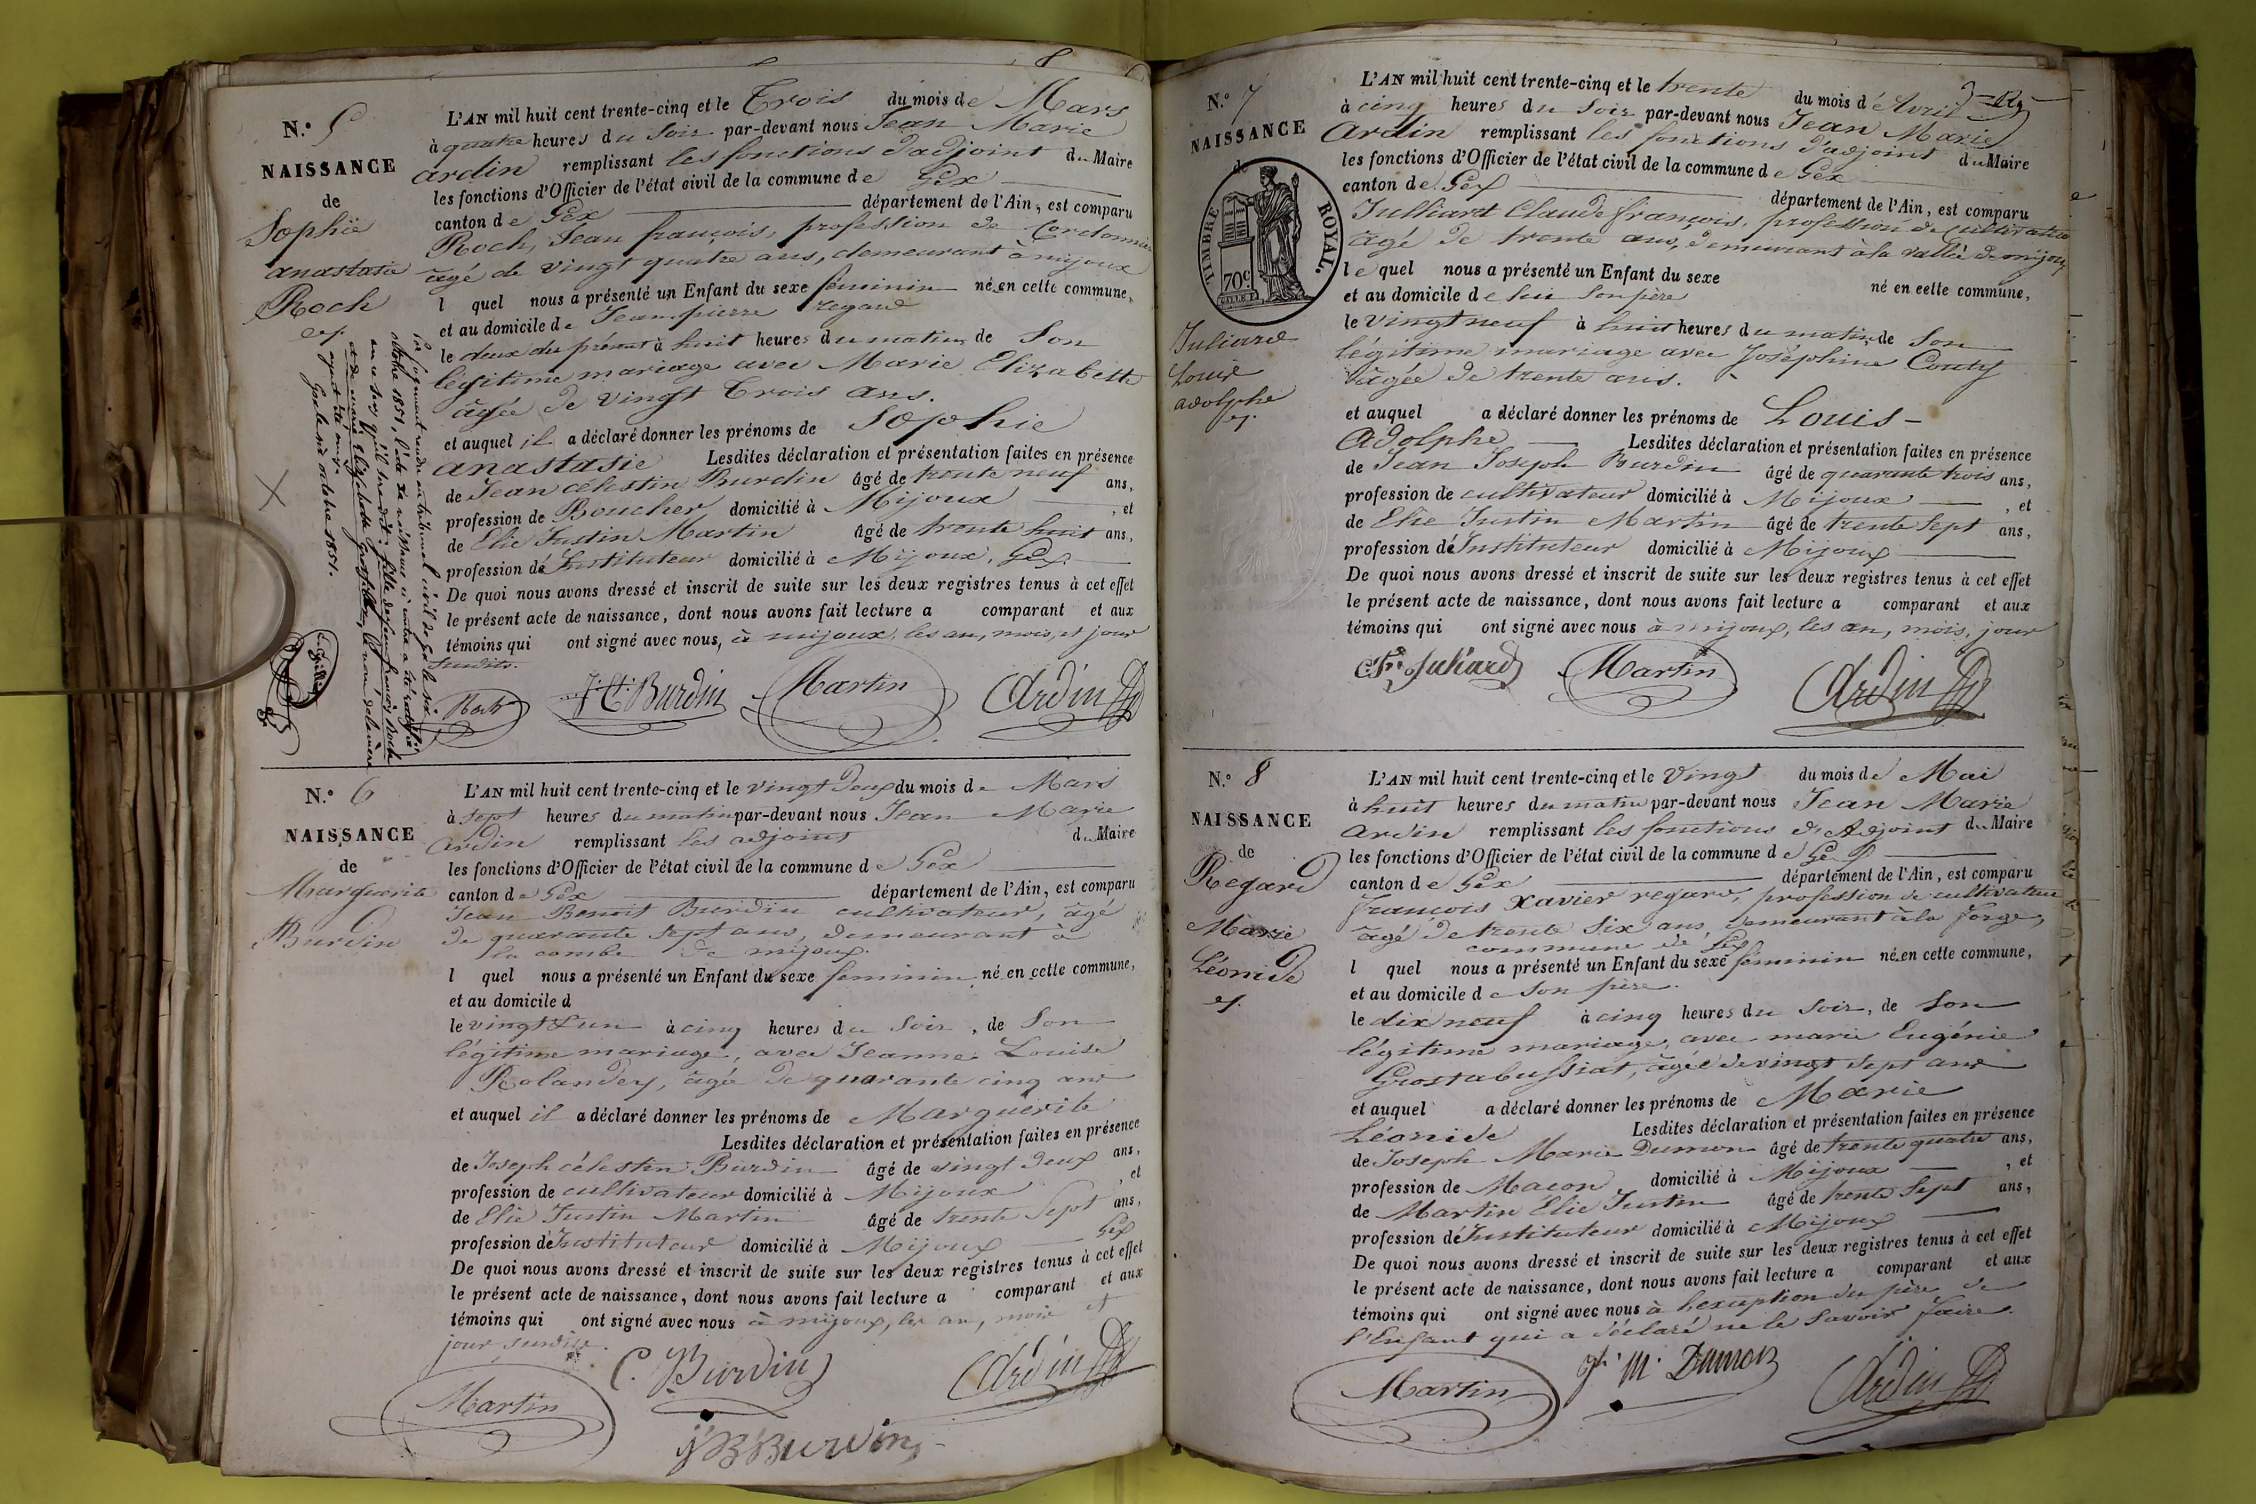 8
N.° 5
NAISSANCE
de
Sophie
anastasie
Roch
L'AN mil huit cent trente-cinq et le Trois du mois de Mars
à quatre heures du Soir par-devant nous Jean Marie
Ardin remplissant les fonctions d'adjoint du Maire
les fonctions d'Officier de l'état civil de la commune de Gex
canton de Gex département de l'Ain, est comparu
Roch, Jean françois, profession de Cordonnier
âgé de vingt quatre ans, demeurant à mijoux
l quel nous a présenté un Enfant du sexe féminin né en cette commune,
et au domicile de Jean pierre regard
le deux du présent à huit heures du matin, de Son
légitime mariage avec Marie Elizabette
âgée de vingt Trois ans.
et auquel il a déclaré donner les prénoms de Sophie
anastasie Lesdites déclaration et présentation faites en présence
de Jean célestin Burdin âgé de trente neuf ans,
profession de Boucher domicilié à Mijoux , et
de Elie Justin Martin âgé de trente huit ans,
profession de Instituteur domicilié à Mijoux, Gex
De quoi nous avons dressé et inscrit de suite sur les deux registres tenus à cet effet
le présent acte de naissance, dont nous avons fait lecture a comparant et aux
témoins qui ont signé avec nous, à mijoux, les an, mois, et jour
susdits.
Roch J. C. Burdin Martin Ardin
Par jugement rendu au tribunal civil de Gex le six
octobre 1851, l'acte de naissance ci contre a été rectifié
en ce sens qu'il sera dit: fille de Jean françois Roch
et de marie Elizabette Grosfillex, le nom de la mère
ayant été omis.
Gex le six octobre 1851.
N.° 6
NAISSANCE
de
Marguerite
Burdin
L'AN mil huit cent trente-cinq et le vingt deux du mois de Mars
à sept heures du matin par-devant nous Jean Marie
Ardin remplissant les adjoint du Maire
les fonctions d'Officier de l'état civil de la commune de Gex
canton de Gex département de l'Ain, est comparu
Jean Benoit Burdin cultivateur, âgé
de quarante sept ans, demeurant à
la combe de mijoux.
l quel nous a présenté un Enfant du sexe féminin né en cette commune,
et au domicile d
le vingt & un à cinq heures du Soir, de Son
légitime mariage, avec Jeanne Louise
Rolandez, âgé de quarante cinq ans
et auquel il a déclaré donner les prénoms de Marguerite
Lesdites déclaration et présentation faites en présence
de Joseph célestin Burdin âgé de vingt deux ans,
profession de cultivateur domicilié à Mijoux , et
de Elie Justin Martin âgé de trente Sept ans,
profession de Instituteur domicilié à Mijoux Gex
De quoi nous avons dressé et inscrit de suite sur les deux registres tenus à cet effet
le présent acte de naissance, dont nous avons fait lecture a comparant et aux
témoins qui ont signé avec nous à mijoux, les an, mois et
jour susdits.
Martin C. Burdin Ardin
J B Burdin
N.° 7
NAISSANCE
de
TIMBRE ROYAL.
70c.
Juliard
Louis
adolphe
L'AN mil huit cent trente-cinq et le trente du mois d'Avril
à cinq heures du Soir par-devant nous Jean Marie
Ardin remplissant les fonctions d'adjoint du Maire
les fonctions d'Officier de l'état civil de la commune de Gex
canton de Gex département de l'Ain, est comparu
Julliard Claude françois, profession de cultivateur
âgé de trente ans, demeurant à la vallée de mijoux
le quel nous a présenté un Enfant du sexe né en cette commune,
et au domicile de lui son père
le vingt neuf à huit heures du matin, de Son
légitime mariage avec Joséphine Couty
âgée de trente ans.
et auquel a déclaré donner les prénoms de Louis-
Adolphe Lesdites déclaration et présentation faites en présence
de Jean Joseph Burdin âgé de quarante trois ans,
profession de cultivateur domicilié à Mijoux , et
de Elie Justin Martin âgé de trente Sept ans,
profession de Instituteur domicilié à Mijoux
De quoi nous avons dressé et inscrit de suite sur les deux registres tenus à cet effet
le présent acte de naissance, dont nous avons fait lecture a comparant et aux
témoins qui ont signé avec nous à mijoux, les an, mois, jour
Juliard Martin Ardin
N.° 8
NAISSANCE
de
Regard
Marie
Léonide
L'AN mil huit cent trente-cinq et le Vingt du mois de Mai
à huit heures du matin par-devant nous Jean Marie
Ardin remplissant les fonctions d'Adjoint du Maire
les fonctions d'Officier de l'état civil de la commune de Gex
canton de Gex département de l'Ain, est comparu
François Xavier regard, profession de cultivateur
âgé de trente Six ans, demeurant à la forge,
commune de Gex
l quel nous a présenté un Enfant du sexe féminin né en cette commune,
et au domicile de Son père.
le dix neuf à cinq heures du Soir, de Son
légitime mariage, avec marie Eugénie
Grostabussiat, âgée de vingt Sept ans
et auquel a déclaré donner les prénoms de Marie
Léonide Lesdites déclaration et présentation faites en présence
de Joseph Marie Dumon âgé de trente quatre ans,
profession de Macon domicilié à Mijoux , et
de Martin Elie Justin âgé de trente Sept ans,
profession de Instituteur domicilié à Mijoux
De quoi nous avons dressé et inscrit de suite sur les deux registres tenus à cet effet
le présent acte de naissance, dont nous avons fait lecture a comparant et aux
témoins qui ont signé avec nous à l'exception du père de
l'Enfant qui a déclaré ne le Savoir faire.
Martin jh. M. Dumon Ardin